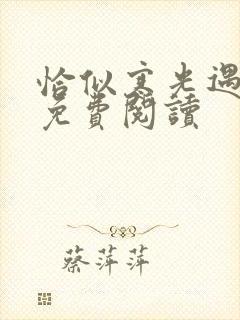 恰似寒光遇
免費閱讀
蔡萍萍